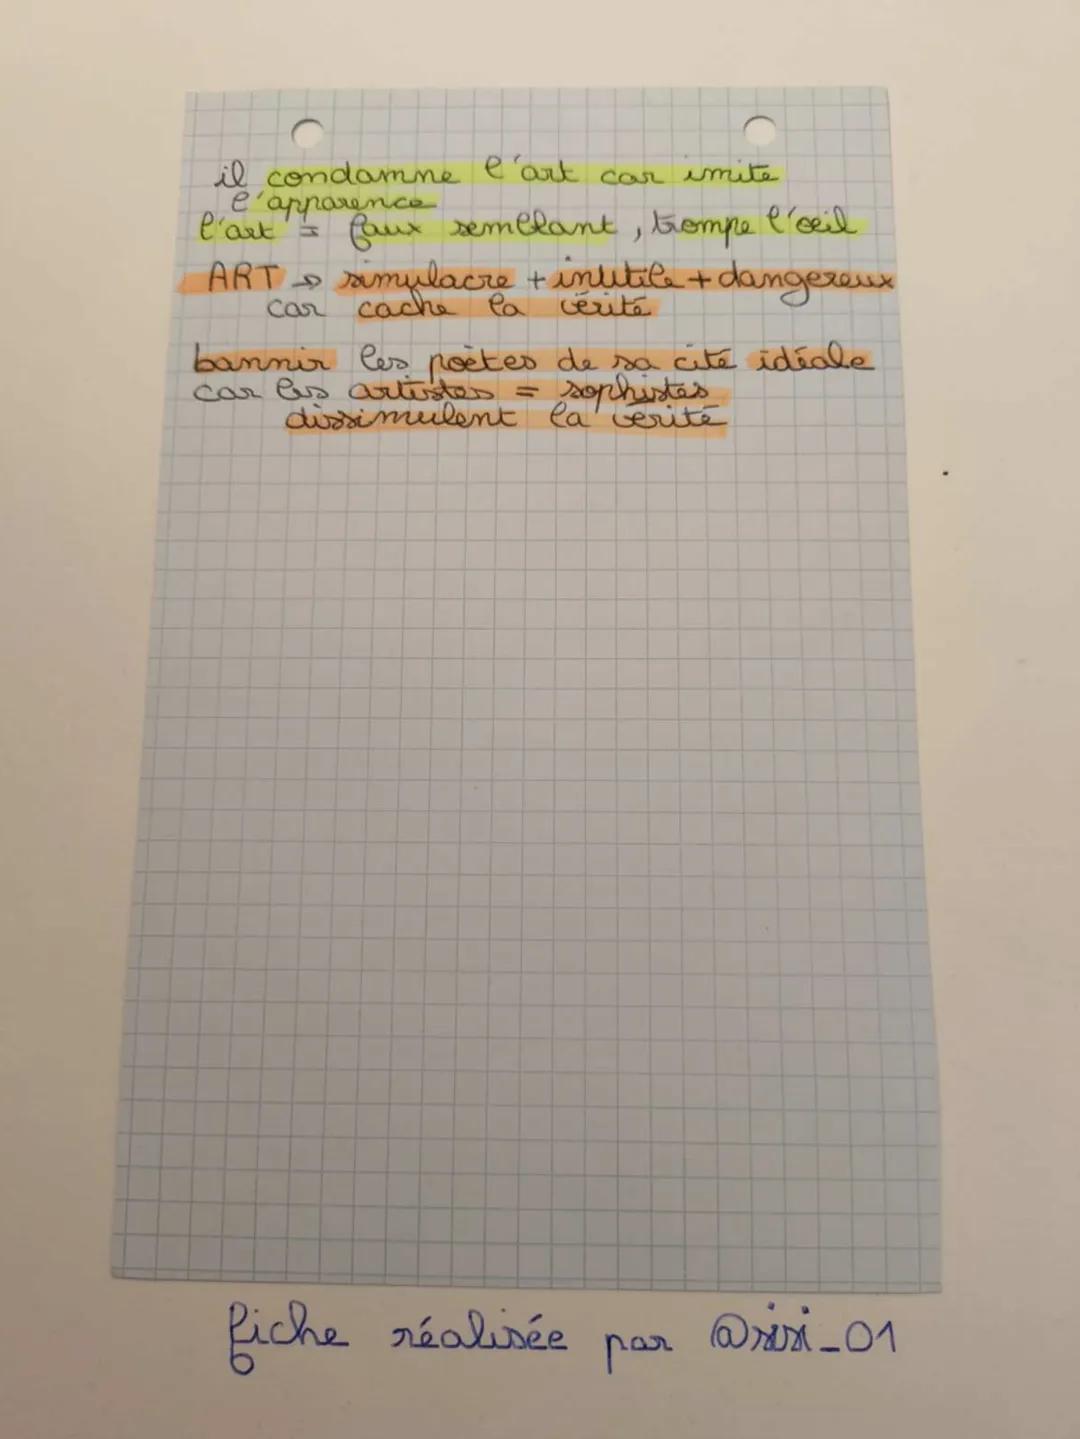 il condamne l'art car imite
l'apparence
l'art = faux semblant, trompe l'œil
ART → simulacre + inutile + dangereux
car cache la vérité
bannir les poètes de sa cité idéale
car les artistes = sophistes
dissimulent la vérité
fiche réalisée par @sisi_01